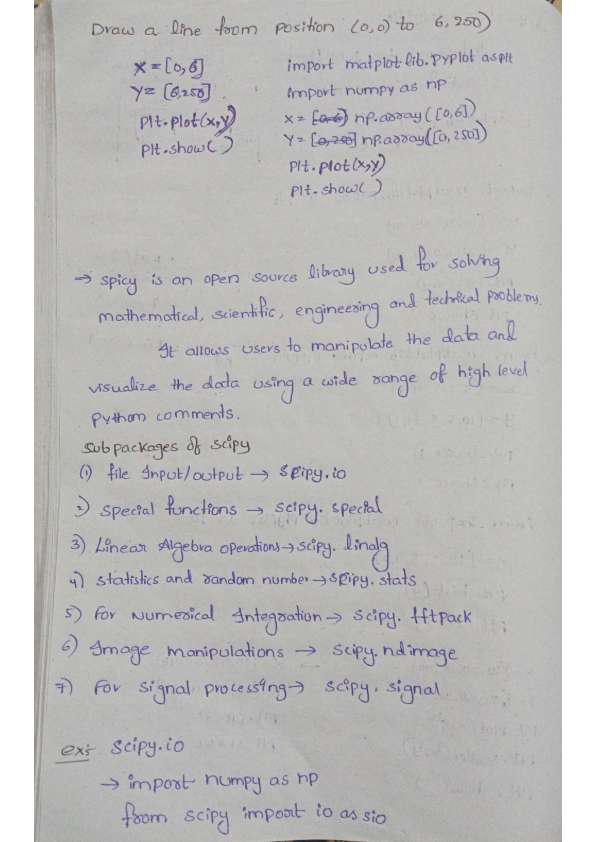 Draw a line from position (0,0) to 6,250)
X = [0,6]
Y = [6,250]
Plt.plot(x,y)
Plt.show()
import matplotlib.pyplot as plt
import numpy as np
x = [0,6] np.array([0,6])
Y = [0,250] np.array([0,250])
Plt.plot(x,y)
Plt.show()
→ spicy is an open source library used for solving
mathematical, scientific, engineering and technical problems.
It allows users to manipulate the data and
visualize the data using a wide range of high level
python comments.
Subpackages of scipy
(1) file Input/output → scipy.io
2) special functions → scipy.special
3) Linear Algebra operations → scipy.linalg
4) statistics and random number → scipy.stats
5) For Numerical Integration → scipy.fftpack
6) Image manipulations → scipy.ndimage
7) For signal processing → scipy.signal
ex:- scipy.io
→ import numpy as np
from scipy import io as sio